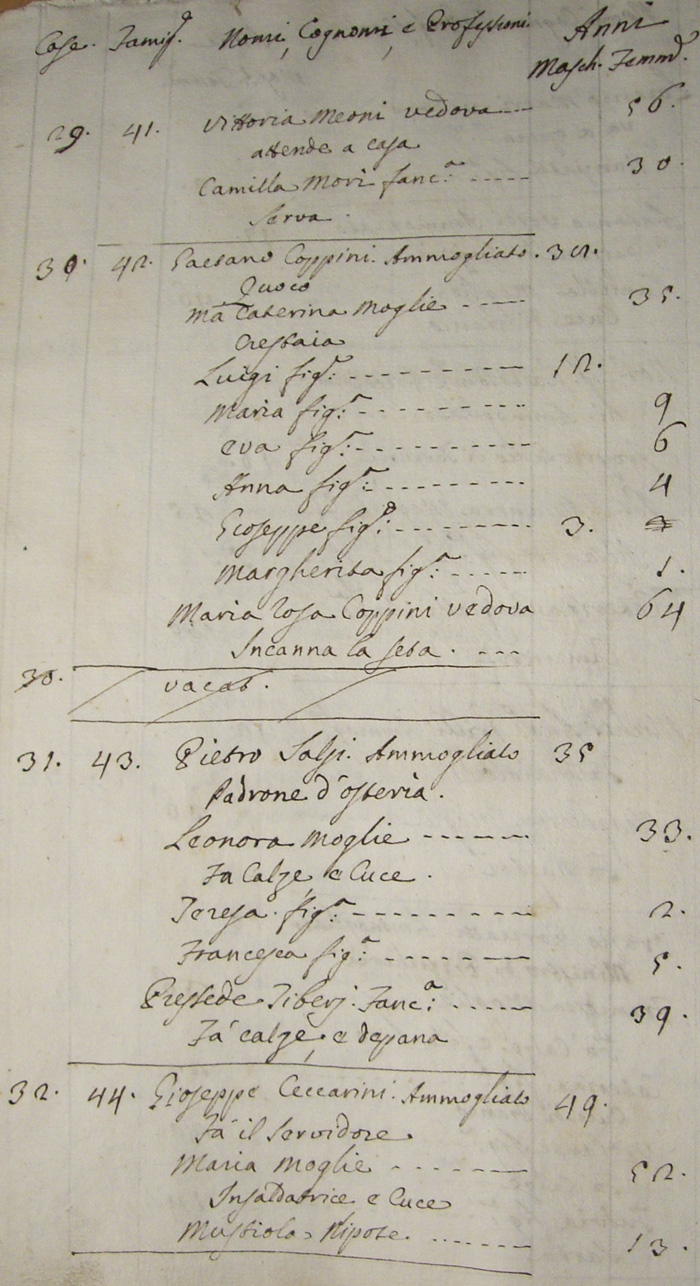 Case. Famig.e Nomi, Cognomi, e Professioni. Anni
Masch. Femm.e
29. 41. Vittoria Meoni vedova 56.
attende a casa
Camilla Mori fanc.a 30.
Serva.
30. 42. Gaetano Coppini. Ammogliato. 32.
Quoco
Ma Caterina Moglie 35.
Crestaia
Luigi fig.o 12.
Maria fig.a 9
Eva fig.a 6
Anna fig.a 4
Gioseppe fig.o 3.
Margherita fig.a 1.
Maria Rosa Coppini vedova 64
Incanna la seta.
30. vacat.
31. 43. Pietro Salsi. Ammogliato 35
Padrone d'osteria.
Leonora Moglie 33.
Fa Calze, e Cuce.
Teresa fig.a 2.
Francesca fig.a 5.
Pressede Tiberj. Fanc.a 39.
Fa' calze, e depana
32. 44. Gioseppe Ceccarini. Ammogliato 49.
Fa' il Servidore
Maria Moglie 52.
Insaldatrice e Cuce
Mustiola Nipote. 13.